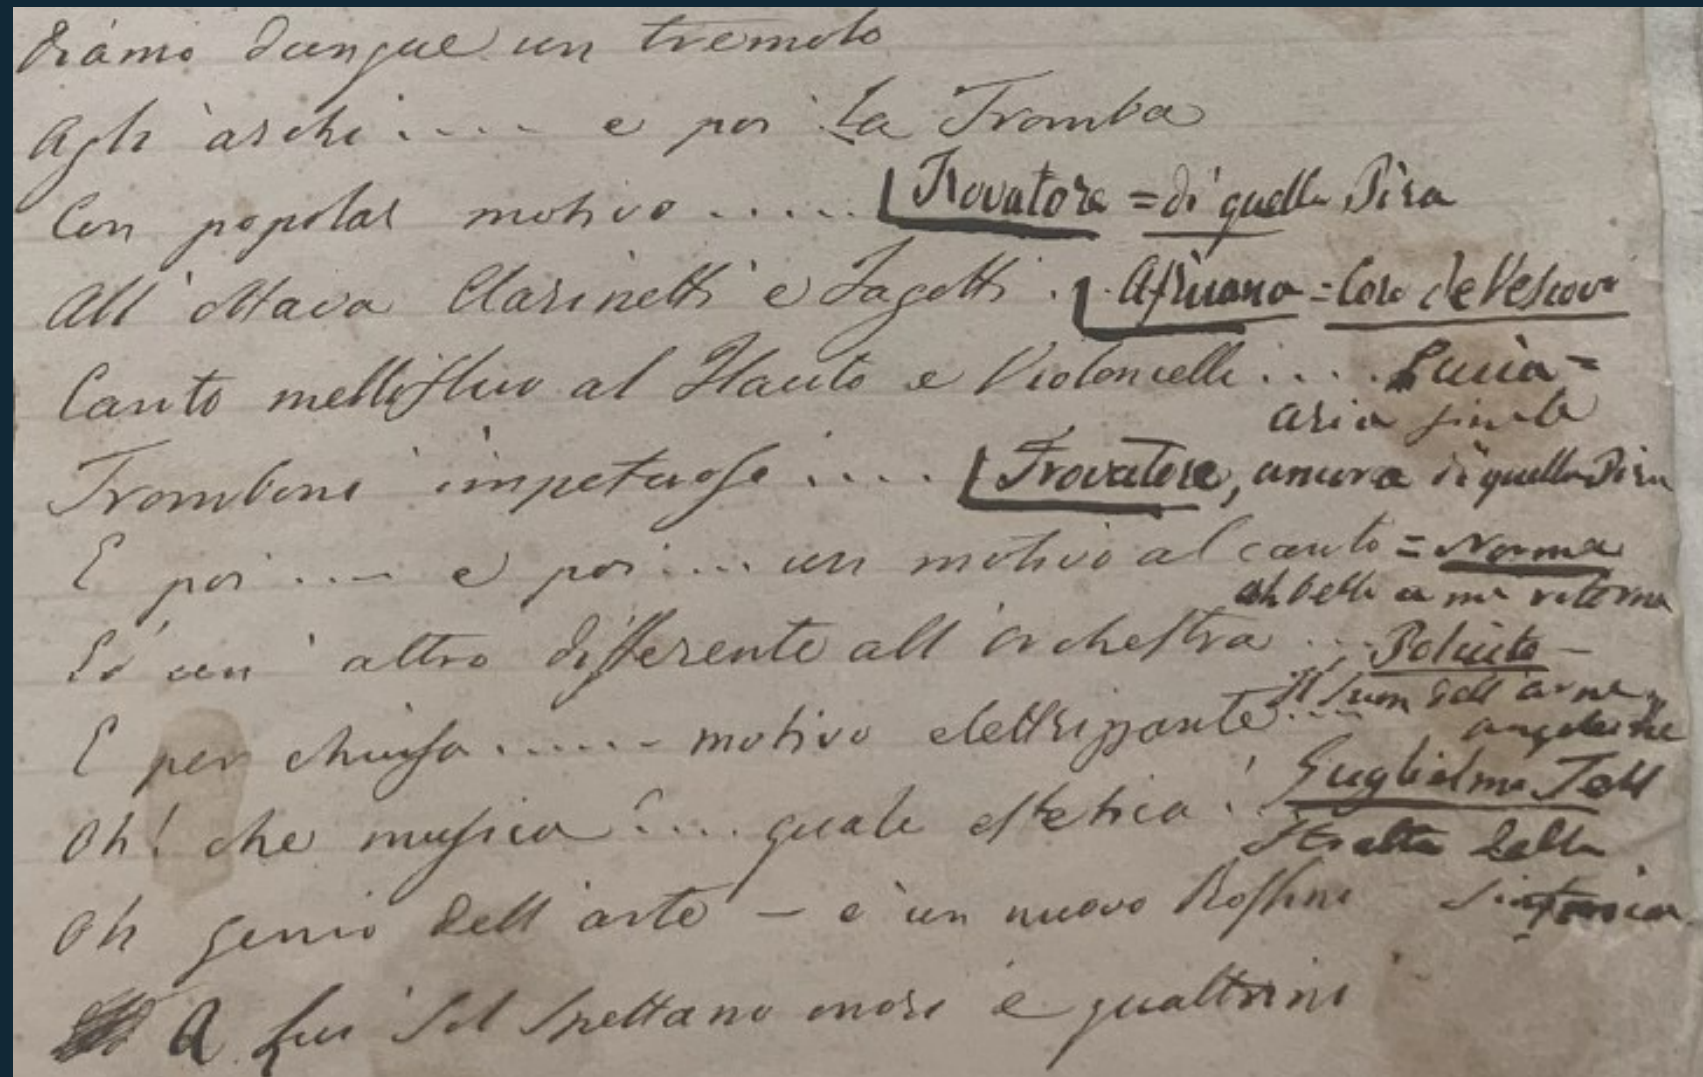 Diamo dunque un tremolo
Agli archi .... e poi la Tromba
Con popolar motivo ..... Trovatore = di quella Pira
All' ottava Clarinetti e Fagotti .. Africana = Coro de Vescovi
Canto mellifluo al Flauto e Violoncelli .... Lucia =
aria finale
Tromboni impetuosi .... Trovatore, ancora di quella Pira
E poi .... e poi .... un motivo al canto = Norma
ah bello a me ritorna
Ed un' altro differente all' orchestra ... Poliuto -
Il suon dell' arpe
angeliche
E per chiusa ...... motivo elettrizzante ...
Guglielmo Tell
Oh! che musica! .... quale estetica!
Stretta della
Sinfonia
Oh genio dell' arte - è un nuovo Rossini
A lui sol spettano onori e quattrini